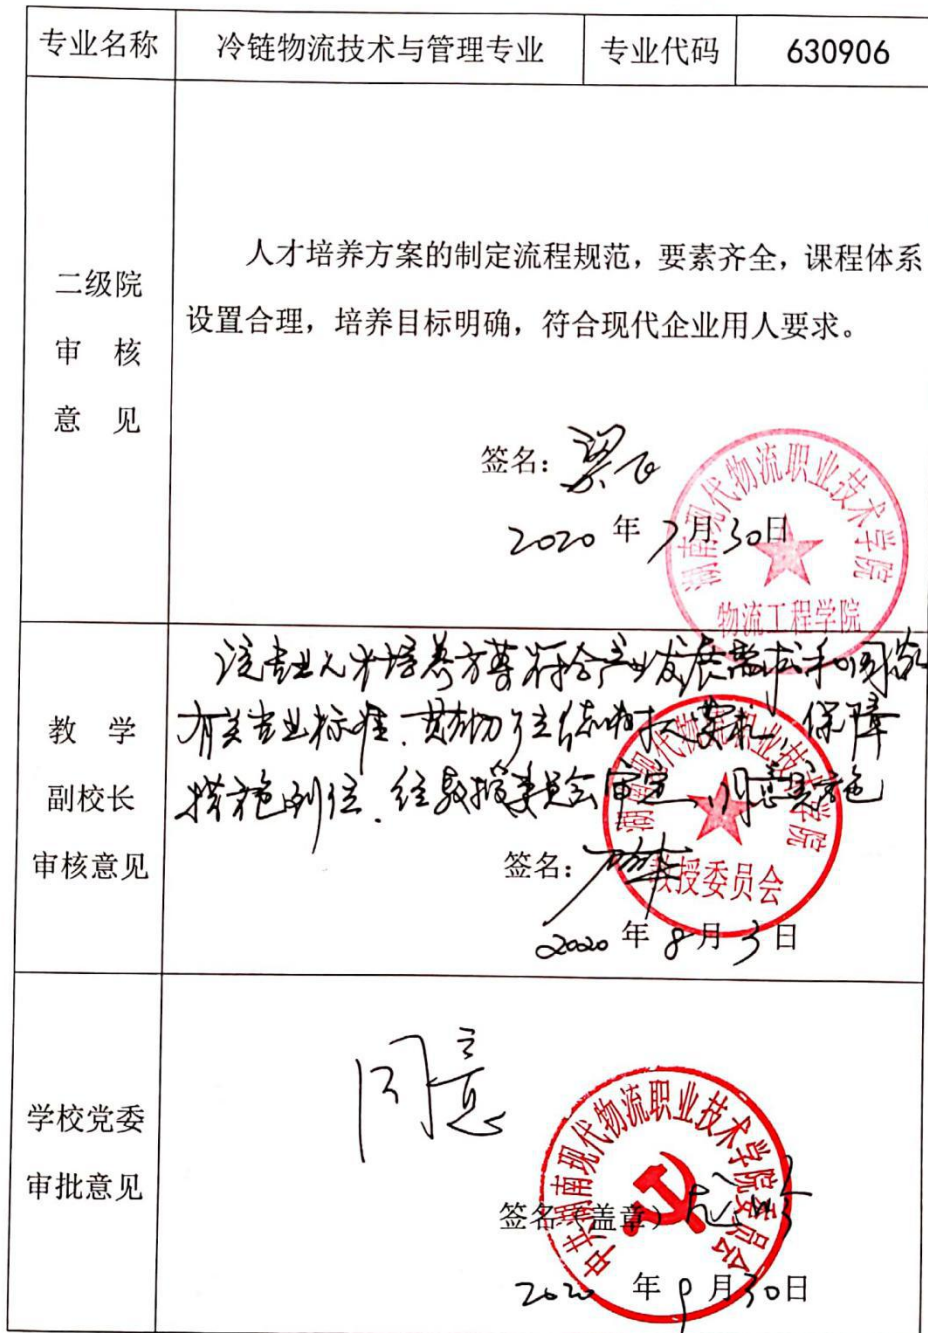 专业名称 冷链物流技术与管理专业 专业代码 630906
二级院
审 核
意 见
人才培养方案的制定流程规范，要素齐全，课程体系
设置合理，培养目标明确，符合现代企业用人要求。
签名：梁飞
2020 年 7 月 30 日
湖南现代物流职业技术学院
物流工程学院
教 学
副校长
审核意见
该专业人才培养方案符合产业发展需求和国家
有关专业标准、贯彻了立德树人要求、保障
措施到位、经教授委员会审定、同意实施
签名：
2020 年 8 月 3 日
湖南现代物流职业技术学院
教授委员会
学校党委
审批意见
同意
签名（盖章）
2020 年 9 月 30 日
中共湖南现代物流职业技术学院委员会